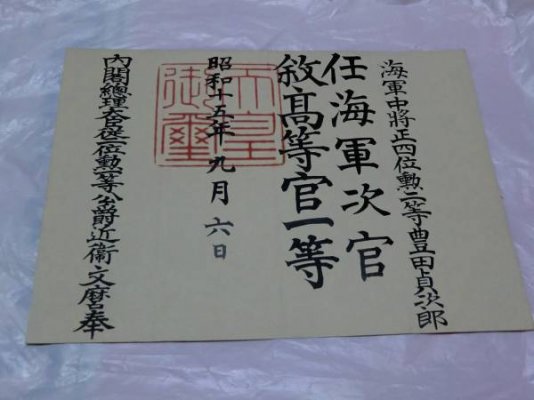 海軍中將正四位勳二等豊田貞次郎
任海軍次官
敘高等官一等
天皇御璽
昭和十五年九月六日
內閣總理大臣從二位勳一等公爵近衞文麿奉